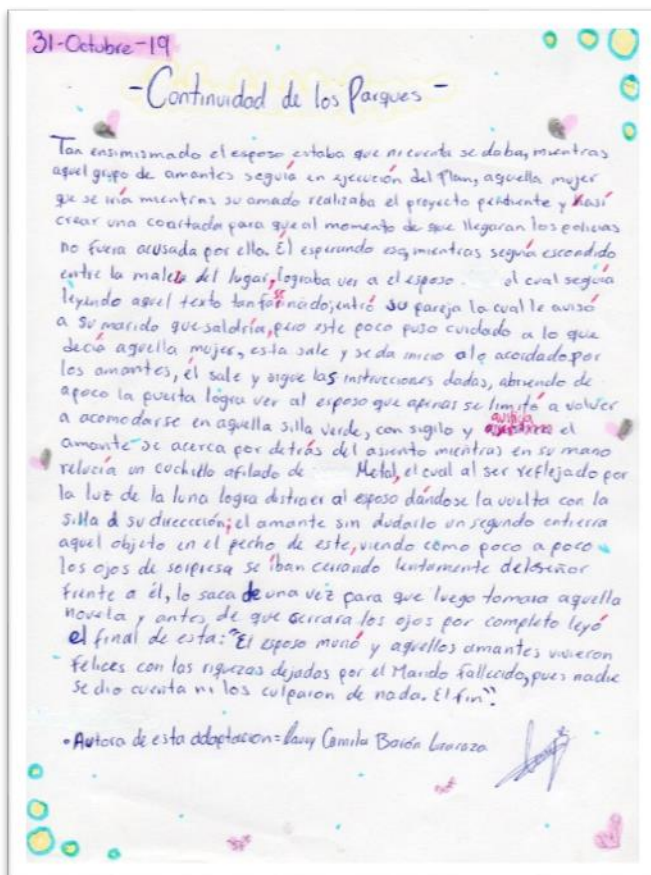 31-Octubre-19
- Continuidad de los Parques -
Tan ensimismado el esposo estaba que ni cuenta se daba, mientras
aquel grupo de amantes seguía en ejecución del Plan, aquella mujer
que se iría mientras su amado realizaba el proyecto pendiente y así
crear una coartada para que al momento de que llegaran los policias
no fuera acusada por ello. Él esperando eso, mientras seguía escondido
entre la maleza del lugar, lograba ver a el esposo. el cual seguía
leyendo aquel texto tan fascinado; entró su pareja la cual le avisó
a su marido que saldría, pero este poco puso cuidado a lo que
decía aquella mujer, esta sale y se da inicio a lo acordado por
los amantes, él sale y sigue las instrucciones dadas, abriendo de
apoco la puerta logra ver al esposo que apenas se limitó a volver
a acomodarse en aquella silla verde, con sigilo y astucia el
amante se acerca por detrás del asiento mientras en su mano
relucía un cuchillo afilado de Metal, el cual al ser reflejado por
la luz de la luna logra distraer al esposo dándose la vuelta con la
silla a su direccción; el amante sin dudarlo un segundo entierra
aquel objeto en el pecho de este, viendo como poco a poco
los ojos de sorpresa se iban cerrando lentamente del señor
frente a él, lo saca de una vez para que luego tomara aquella
novela y antes de que cerrara los ojos por completo leyó
el final de esta: "El esposo murió y aquellos amantes vivieron
felices con las riquezas dejadas por el Marido fallecido, pues nadie
se dio cuenta ni los culparon de nada. El fin".
• Autora de esta adaptacion = Camila Barón